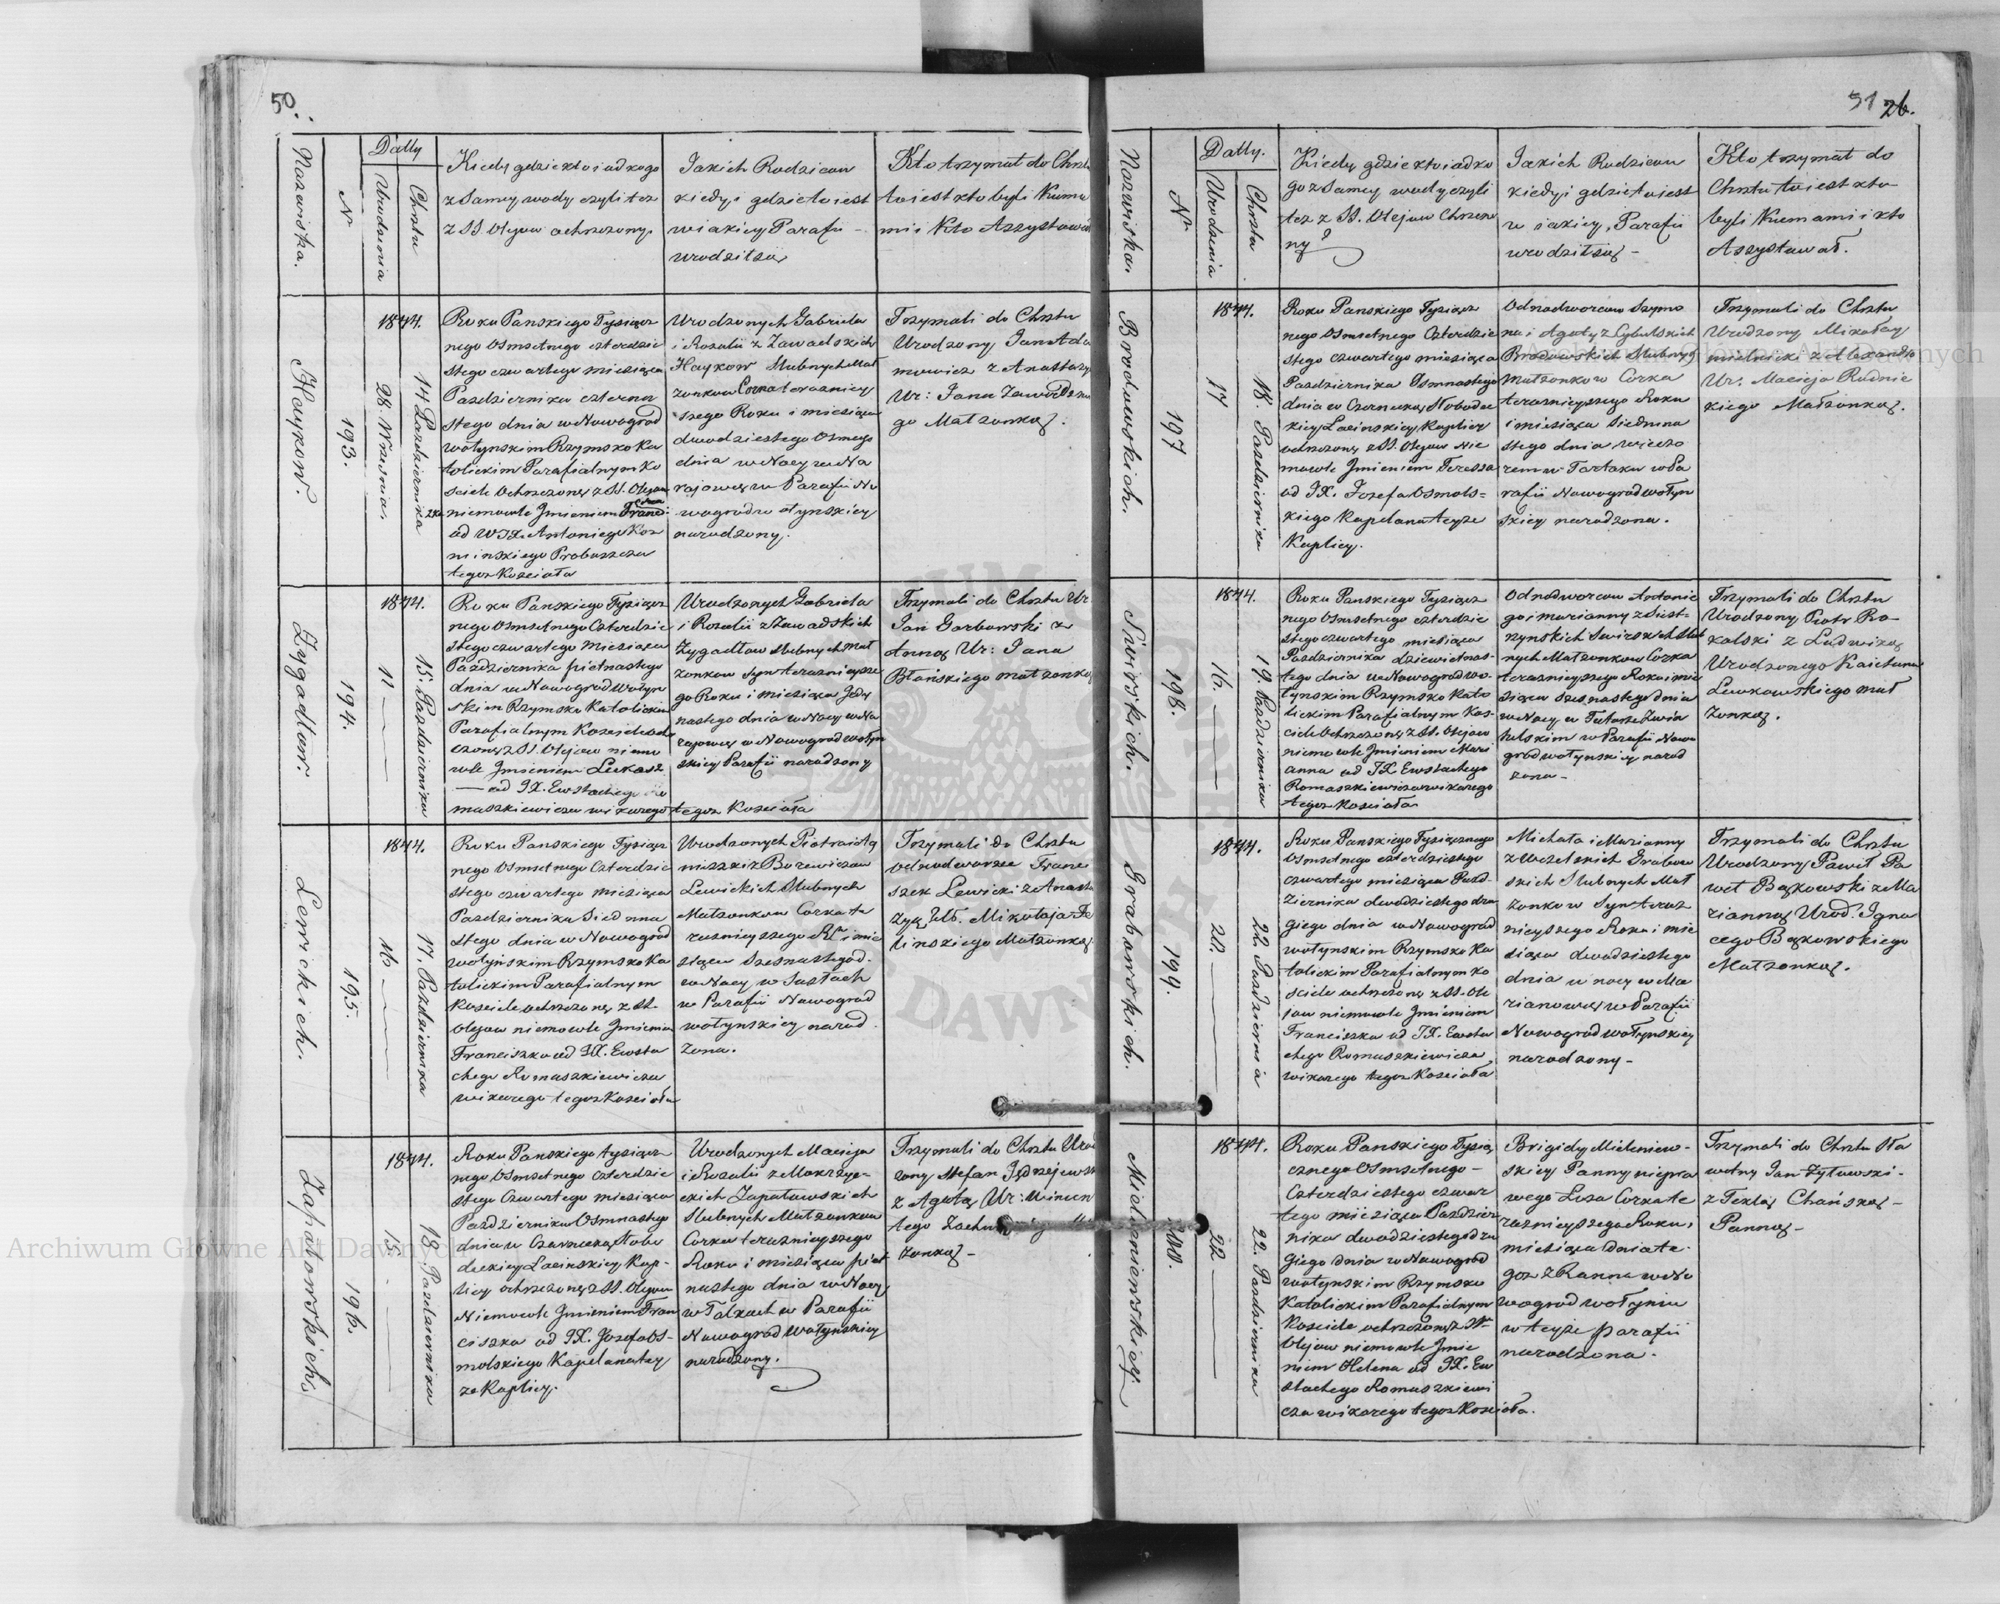 50.
Nazwiska.
N
Datty
Urodzenia
Chrztu
Kiedy gdzie kto i ad kogo
z Samey wody czyli tez
z SS Olejow ochrzczony.
Jakich Rodzicow
kiedy i gdzie to iest
w iakiey Parafii -
urodził się
Kto trzymał do Chrztu
to iest kto byli Kuma
mi i Kto Assystował
Haykow.
193.
1844.
28. Września.
14 Pazdziernika
Roku Panskiego Tysiącz
nego Osmsetnego czterdzie
stego czwartego miesiąca
Pazdziernika czterna
stego dnia w Nowogrod
wołynskim Rzymsko Ka
tolickim Parafialnym Ko
sciele Ochrzczone z SS. Olejow
niemowle Jmieniem Franci
od WJX. Antoniego Koz
minskiego Proboszcza
tegoz Kościoła
Urodzonych Gabriela
i Rozalii z Zawadskich
Haykow Slubnych Mał
zonkow Corka terazniey
szego Roku i miesiąca
dwudziestego Osmego
dnia w Nocy w Na
rajowce w Parafii No
wogrodwołynskiey
narodzony.
Trzymali do Chrztu
Urodzony Jan Ada
mowicz z Anastazyą
Ur: Jana Zawadzkie
go Małzonką.
Zygadłow.
194.
1844.
11
15. Pazdziernika
Roku Panskiego Tysiącz
nego Osmsetnego Czterdzie
stego czwartego Miesiąca
Pazdziernika pietnastego
dnia w Nowogrod Wołyn
skim Rzymsko Katolickim
Parafialnym Kosciele och
czone z SS. Olejow niemo
wle Jmieniem Łukasz
— od JX. Eustachego Ro
maszkiewicza wikarego tegoz Kościoła
Urodzonych Gabriela
i Rozalii z Zawadskich
Zygadłow slubnych Mał
zonkow Syn teraznieysze
go Roku i miesiąca Jedy
nastego dnia w Nocy w Na
rajowce w Nowogrodwołyn
skiey Parafii narodzony
Trzymali do Chrztu Ur:
Jan Garbowski z
Anną Ur: Jana
Błońskiego małzonką
Lewickich.
195.
1844.
16
17. Pazdziernika
Roku Panskiego Tysiącz
nego Osmsetnego Czterdzie
stego czwartego Miesiąca
Pazdziernika Siedmna
stego dnia w Nowogrod
wołynskim Rzymsko Ka
tolickim Parafialnym
Kosciele ochrzczone z SS.
Olejow niemowle Jmieniem
Franciszka od JX. Eusta
chego Romaszkiewicza
wikarego tegoz Kościoła
Urodzonych Piotra i
Lewickich Slubnych
Małzonkow Corka te
raznieyszego Rku i mie
siąca Szesnastego d.
w Nocy w
w Parafii Nowogrod
wołynskiey narod
zona.
Trzymali do Chrztu
Odnodworzec Franci
szek Lewicki z Anasta
zyą Mikołaja
linskiego Małzonką
Zapatowskich.
196.
1844.
15.
18. Pazdziernika
Roku Panskiego tysiącz
nego Osmsetnego Czterdzie
stego Czwartego miesiąca
Pazdziernika Osmnastego
dnia w Czarnecką Słobo
dzkiey Lacinskiey Kap-
licy ochrzczone z SS. Olejow
Niemowle Jmieniem Fran
ciszka od JX. Jozefa Os-
molskiego Kapelana tey
ze Kaplicy.
Urodzonych Macieja
i Rozalii z Mokrzyc-
kich Zapatowskich
Slubnych Małzonkow
Corka teraznieyszego
Roku i miesiąca piet
nastego dnia w Nocy
w Talkach w Parafii
Nowogrod Wołynskiey
narodzony.
Trzymali do Chrztu Urod
zony Stefan Jędrzejewsk
z Agatą Ur: Wincen
tego
zonką -
51 26.
Nazwiska.
N
Datty.
Urodzenia
Chrztu
Kiedy gdzie kto i ad ko
go z Samey wody czyli
tez z SS. Olejow Chrzczo
ny?
Jakich Rodzicow
kiedy i gdzie to iest
w iakiey, Parafii
urodził się -
Kto trzymał do
Chrztu to iest kto
byli Kumami i kto
Assystował.
Brodowskich.
197
1844.
17
18. Pazdziernika
Roku Panskiego Tysiącz
nego Osmsetnego Czterdzie
stego czwartego miesiąca
Pazdziernika Osmnastego
dnia w Czarnecką Słobodz
kiey Lacinskiey Kaplicy
ochrzczone z SS. Olejow Nie
mowle Jmieniem Teressa
od JX. Jozefa Osmols-
kiego Kapelana teyze
Kaplicy.
Odnodworcow Szymo
na i Agaty z Cybulskich
Brodowskich Slubnych
Małzonkow Corka
teraznieyszego Roku
i miesiąca Siedmna
stego dnia wieczo
rem w Tartaku w Pa
rafii Nowogrodwołyn
skiey narodzona.
Trzymali do Chrztu
Urodzony Mikołay
mielnicki z Alexandrą
Ur: Macieja Rudnic
kiego Małzonką.
Swirskich.
198.
1844.
16.
19. Pazdziernika
Roku Panskiego Tysiącz
nego Osmsetnego czterdzie
stego czwartego miesiąca
Pazdziernika dziewietnas-
tego dnia w Nowogrod wo-
łynskim Rzymsko Kato
lickim Parafialnym Kos-
ciele Ochrzczone z SS. Olejow
niemowle Jmieniem Mari
anna od JX Eustachego
Romaszkiewicza wikarego
tegoz Kościoła
Odnodworcow Antonie
go i Marianny z
Swirskich Slub
nych Małzonkow Corka
teraznieyszego Roku i mie
siąca szesnastego dnia
w Nocy w
w Parafii Nowo
grodwołynskiey narod
zona -
Trzymali do Chrztu
Urodzony Piotr Ro-
kalski z Ludwiką
Urodzonego Kaietana
Lewkowskiego mał
zonką.
Grabowskich.
199.
1844.
20.
22. Pazdziernia
Roku Panskiego Tysiącznego
Osmsetnego czterdziestego
czwartego miesiąca Pazd-
ziernika dwudziestego dru
giego dnia w Nowogrod
wołynskim Rzymsko Ka
tolickim Parafialnym Ko
sciele ochrzczone z SS. Ole
jow niemowle Jmieniem
Franciszka od JX. Eusta
chego Romaszkiewicza,
wikarego tegoz Kościoła
Michała i Marianny
z Wezelskich Grabow
skich Slubnych Mał
zonkow Syn teraz
nieyszego Roku i mie
siąca dwudziestego
dnia w nocy w Ma
rianowce w Parafii
Nowogrodwołynskiey
narodzony -
Trzymali do Chrztu
Urodzony Paweł Pa
weł Bąkowski z Ma
rianną Urod. Igna
cego Bąkowskiego
Małzonką.
Mielieniewskiey.
200.
1844.
22
22. Pazdziernika
Roku Panskiego Tysią
cznego Osmsetnego -
Czterdziestego czwar
tego miesiąca Pazdzier
nika dwudziestego dru
giego dnia w Nowogrod
wołynskim Rzymsko
Katolickim Parafialnym
Kosciele ochrzczone z SS.
Olejow niemowle Jmie
niem Helena od JX. Eu
stachego Romaszkiewi
cza wikarego tegoz Kościoła.
Brigidy Mieleniew-
skiey Panny niepra
wego Łoza Corka te
raznieyszego Roku,
miesiąca dnia te-
goz z Ranna w No
wogrod wołyniu
w teyże parafii
narodzona.
Trzymali do Chrztu Sła
wetny Jan Zytowski -
z Teklą Chańską -
Panną -
Archiwum Główne Akt Dawnych
Archiwum Główne Akt Dawnych